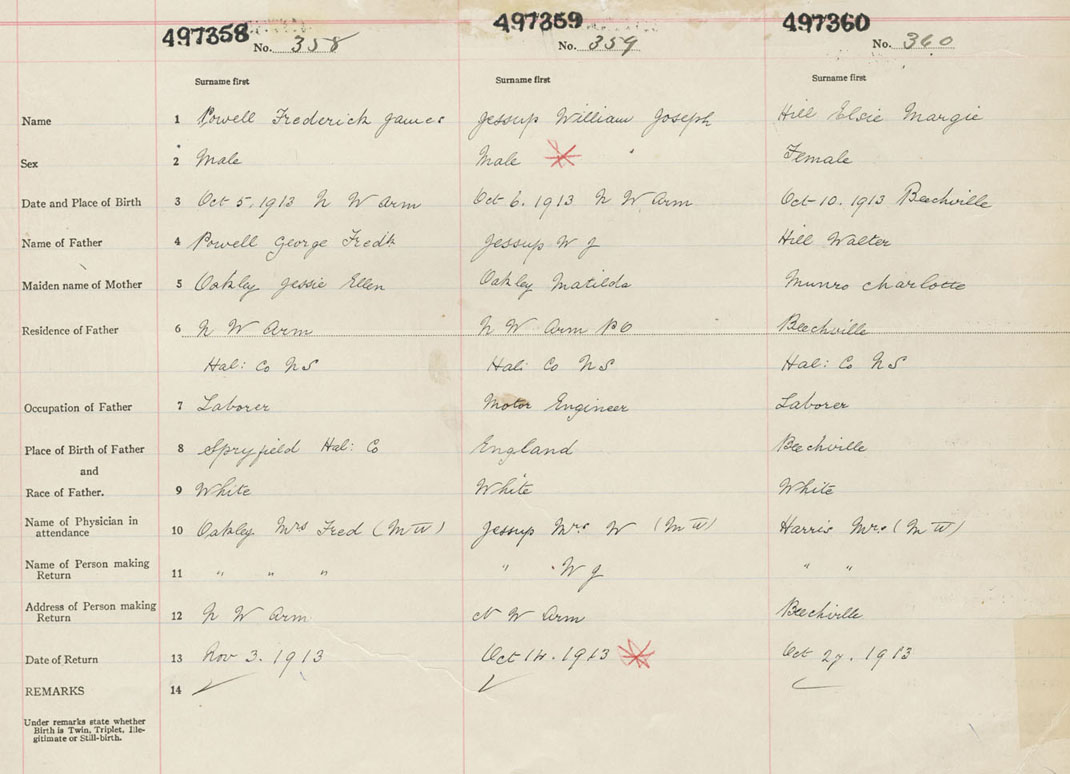 497358 No. 358 497359 No. 359 497360 No. 360
Surname first Surname first Surname first
Name 1 Powell Frederick James Jessup William Joseph Hill Elsie Margie
Sex 2 Male Male Female
Date and Place of Birth 3 Oct 5, 1913 N W Arm Oct 6. 1913 N W Arm Oct 10. 1913 Beechville
Name of Father 4 Powell George Fredk Jessup W J Hill Walter
Maiden name of Mother 5 Oakley Jessie Ellen Oakley Matilda Munro Charlotte
Residence of Father 6 N W Arm N W Arm PO Beechville
Hal: Co NS Hal: Co NS Hal: Co NS
Occupation of Father 7 Laborer Motor Engineer Laborer
Place of Birth of Father 8 Spryfield Hal: Co England Beechville
and
Race of Father. 9 White White White
Name of Physician in
attendance 10 Oakley Mrs Fred (M W) Jessup Mrs W (M W) Harris Mrs (M W)
Name of Person making
Return 11 " " " " " W J " "
Address of Person making
Return 12 N W Arm N W Arm Beechville
Date of Return 13 Nov 3. 1913 Oct 14. 1913 Oct 27. 1913
REMARKS 14
Under remarks state whether
Birth is Twin, Triplet, Ille-
gitimate or Still-birth.